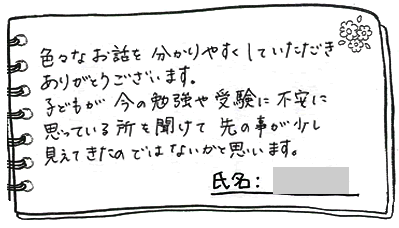 色々なお話を分かりやすくしていただき
ありがとうございます。
子どもが今の勉強や受験に不安に
思っている所を聞けて先の事が少し
見えてきたのではないかと思います。
氏名：